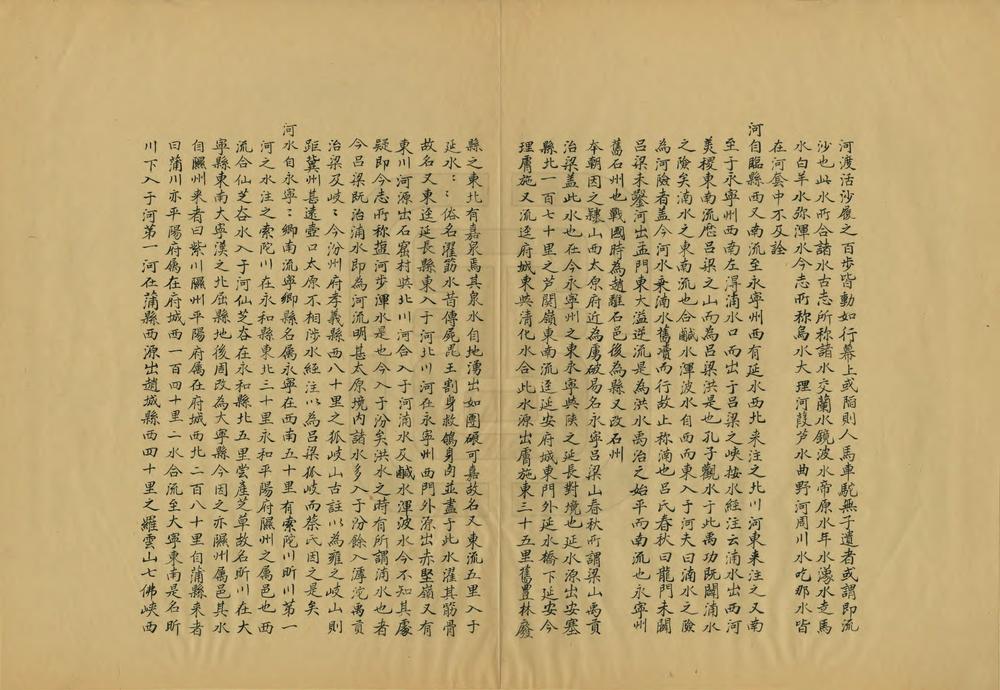 河渡活沙履之百步皆動如行幕上或陷則人馬車駝無孑遺者或謂即流
沙也此水所合諸水古志所称諸水交蘭水鏡波水帝原水年水濛水走馬
水白羊水弥渾水今志所称烏水大理河葭芦水曲野河周川水吃那水皆
在河套中不及詮
河自臨縣西又南流至永寧州西有延水西北来注之北川河東来注之又南
至于永寧州西南左淂湳水口而出于呂梁之峡按水經注云湳水出西河
羙稷東南流庶呂梁之山而為呂梁洪是也孔子觀水于此禹功既闢湳水
之險矣湳水之東南流也合鹹水渾波水自西而東入于河夫曰湳水之險
為河險者盖今河水乗湳水舊瀆而行故止称湳也呂氏春秋曰龍門未闢
吕梁未鑿河出孟門東大溢逆流是為洪水禹治之始平而南流也永寧州
舊石州也戰國時為趙離石邑後為縣又改石州
本朝因之隸山西太原府近為虜破易名永寧呂梁山春秋所謂梁山禹貢
治梁盖此水也在今永寧州之東永寧與陝之延長對境也延水源出安塞
縣北一百七十里之芦関嶺東南流逕延安府城東門外延水橋下延安今
理膚施又流逕府城東與清化水合此水源出膚施東三十五里舊豐林廢
縣之東北有嘉泉焉其泉水自地湧出如圑碾可嘉故名又東流五里入于
延水：：俗名濯筋水昔傳屍毘王割身救鴿身肉並盡于此水濯其筋骨
故名又東逕延長縣東入于河北川河在永寧州西門外源出赤堅嶺又有
東川河源出石窑村與北川河合入于河湳水及鹹水渾波水今不知其處
疑即今志所称㨗河步渾水是也今入于汾矣洪水之時有所謂湳水也者
今吕梁既治湳水即為河流明甚太原境内諸水多入于汾餘入滹沱禹貢
治梁及岐：今汾州府孝義縣西八十里之狐岐山古註以為雍之岐山則
距冀州甚遠壺口太原不相渉水經注以為呂梁狐岐而蔡氏因之是矣
河水自永寧：鄉南流寧鄉縣名属永寧在西南五十里有索陀川昕川第一
河之水注之索陀川在永和縣東北三十里永和平陽府隰州之属邑也西
流合仙芝峇水入于河仙芝峇在永和縣北五里甞産芝草故名昕川在大
寧縣東南大寧漢之北屈縣地後周改為大寧縣今因之亦隰州属邑其水
自隰州来者曰紫川隰州平陽府属在府城西北二百八十里自蒲縣来者
曰蒲川亦平陽府属在府城西一百四十里二水合流至大寧東南是名昕
川下入于河第一河在蒲縣西源出趙城縣西四十里之羅雲山七佛峡西